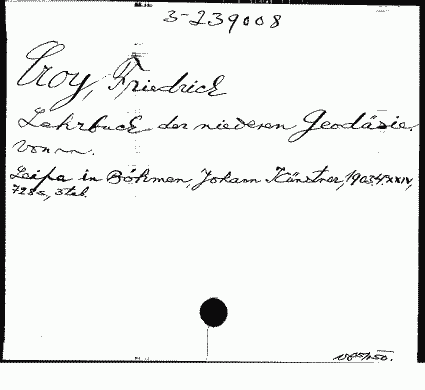 3-239008
Croy, Friedrich
Lehrbuch der niederen Geodäsie.
Von —.
Leipa in Böhmen, Johann Künstner, 1903. 4. XXIV,
728 s, 3 tab.